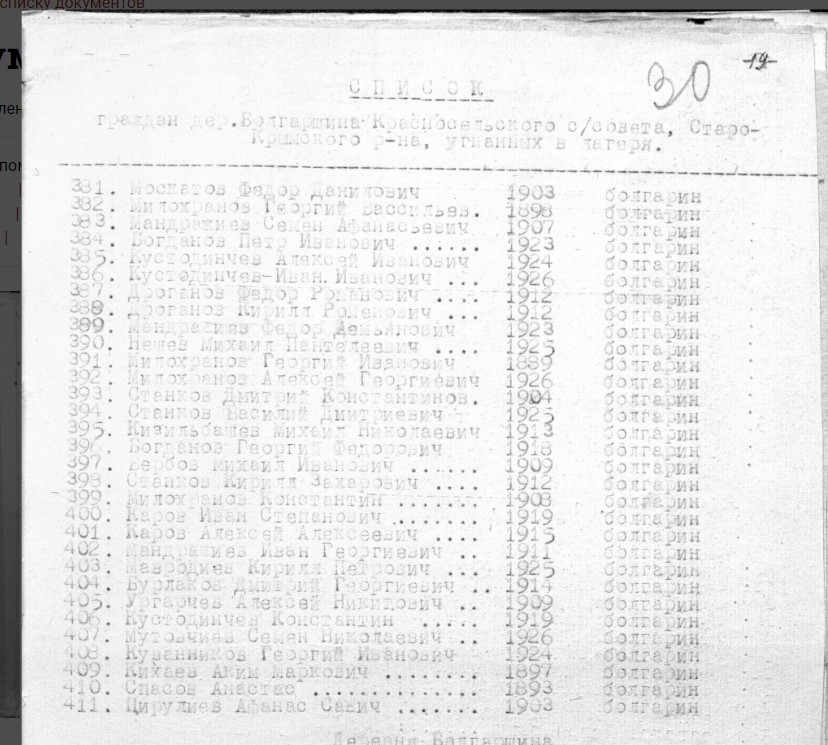 списку документов
30
19
СПИСОК
граждан дер.Болгарщина Красносельского с/совета, Старо-
Крымского р-на, угнанных в лагеря.
381. Москатов Федор Данилович 1903 болгарин
382. Милохранов Георгий Вассильев. 1898 болгарин
383. Мандражиев Семен Афанасьевич 1907 болгарин
384. Богданов Петр Иванович ...... 1923 болгарин
385. Кустодинчев Алексей Иванович 1924 болгарин
386. Кустодинчев-Иван Иванович ... 1926 болгарин
387. Дроганов Федор Романович .... 1912 болгарин
388. Дроганов Кирилл Романович ... 1912 болгарин
389. Мандражиев Федор Демьянович 1923 болгарин
390. Нешев Михаил Пантелеевич .... 1925 болгарин
391. Милохранов Георгий Иванович 1889 болгарин
392. Милохранов Алексей Георгиевич 1926 болгарин
393. Станков Дмитрий Константинов. 1904 болгарин
394. Станков Василий Дмитриевич 1925 болгарин
395. Кизильбашев Михаил Николаевич 1913 болгарин
396. Богданов Георгий Федорович 1918 болгарин
397. Вербов Михаил Иванович ...... 1909 болгарин
398. Станков Кирилл Захарович .... 1912 болгарин
399. Милохранов Константин ....... 1908 болгарин
400. Каров Иван Степанович ....... 1919 болгарин
401. Каров Алексей Алексеевич .... 1915 болгарин
402. Мандражиев Иван Георгиевич .. 1911 болгарин
403. Мавродиев Кирилл Петрович ... 1925 болгарин
404. Бурлаков Дмитрий Георгиевич .. 1914 болгарин
405. Ургарчев Алексей Никитович .. 1909 болгарин
406. Кустодинчев Константин ..... 1919 болгарин
407. Мутовчиев Семен Николаевич .. 1926 болгарин
408. Куванников Георгий Иванович 1924 болгарин
409. Кихаев Аким Маркович ........ 1897 болгарин
410. Спасов Анастас .............. 1893 болгарин
411. Цирулиев Афанас Савич ....... 1903 болгарин
Деревня Болгарщина